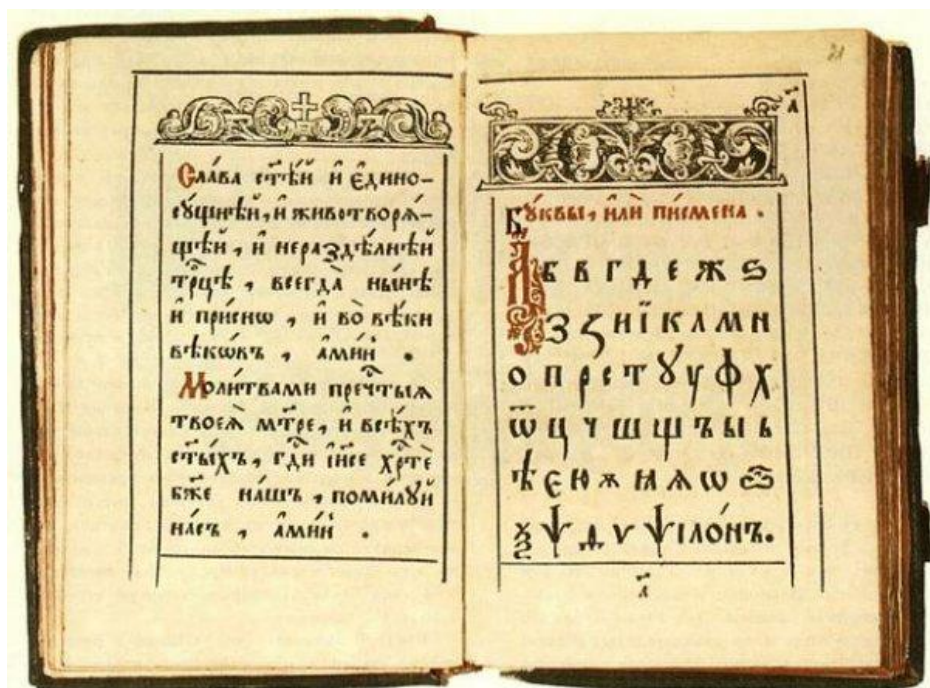 Сла́ва ст҃ѣ́й и҆ є҆дино-
сꙋ́щнѣй, и҆ животворѧ́-
щѣй, и҆ нераздѣ́лнѣй
трⷪ҇цѣ, всегда̀ ны́нѣ
и҆ при́снѡ, и҆ во̀ вѣ́ки
вѣкѡ́въ, а҆ми́нь.
Моли́твами пречⷭ҇тыѧ
твоеѧ̀ мт҃ре, и҆ всѣ́хъ
ст҃ы́хъ, гдⷭ҇и і҆и҃се хрⷭ҇тѐ
бж҃е на́шъ, поми́лꙋй
на́съ, а҆ми́нь.
21
а҃
Бꙋ́квы, и҆лѝ пи́смена.
А Б В Г Д Е Ж Ѕ
З Ꙁ И Ї К Л М Н
О П Р С Т Ꙋ Ѵ Ф Х
Ѿ Ц Ч Ш Щ Ъ Ы Ь
Ѣ Є Ю Ѫ Ꙗ Ѧ Ѡ
Ѯ Ѱ Ѵ Ѱїло́нъ.
а҃